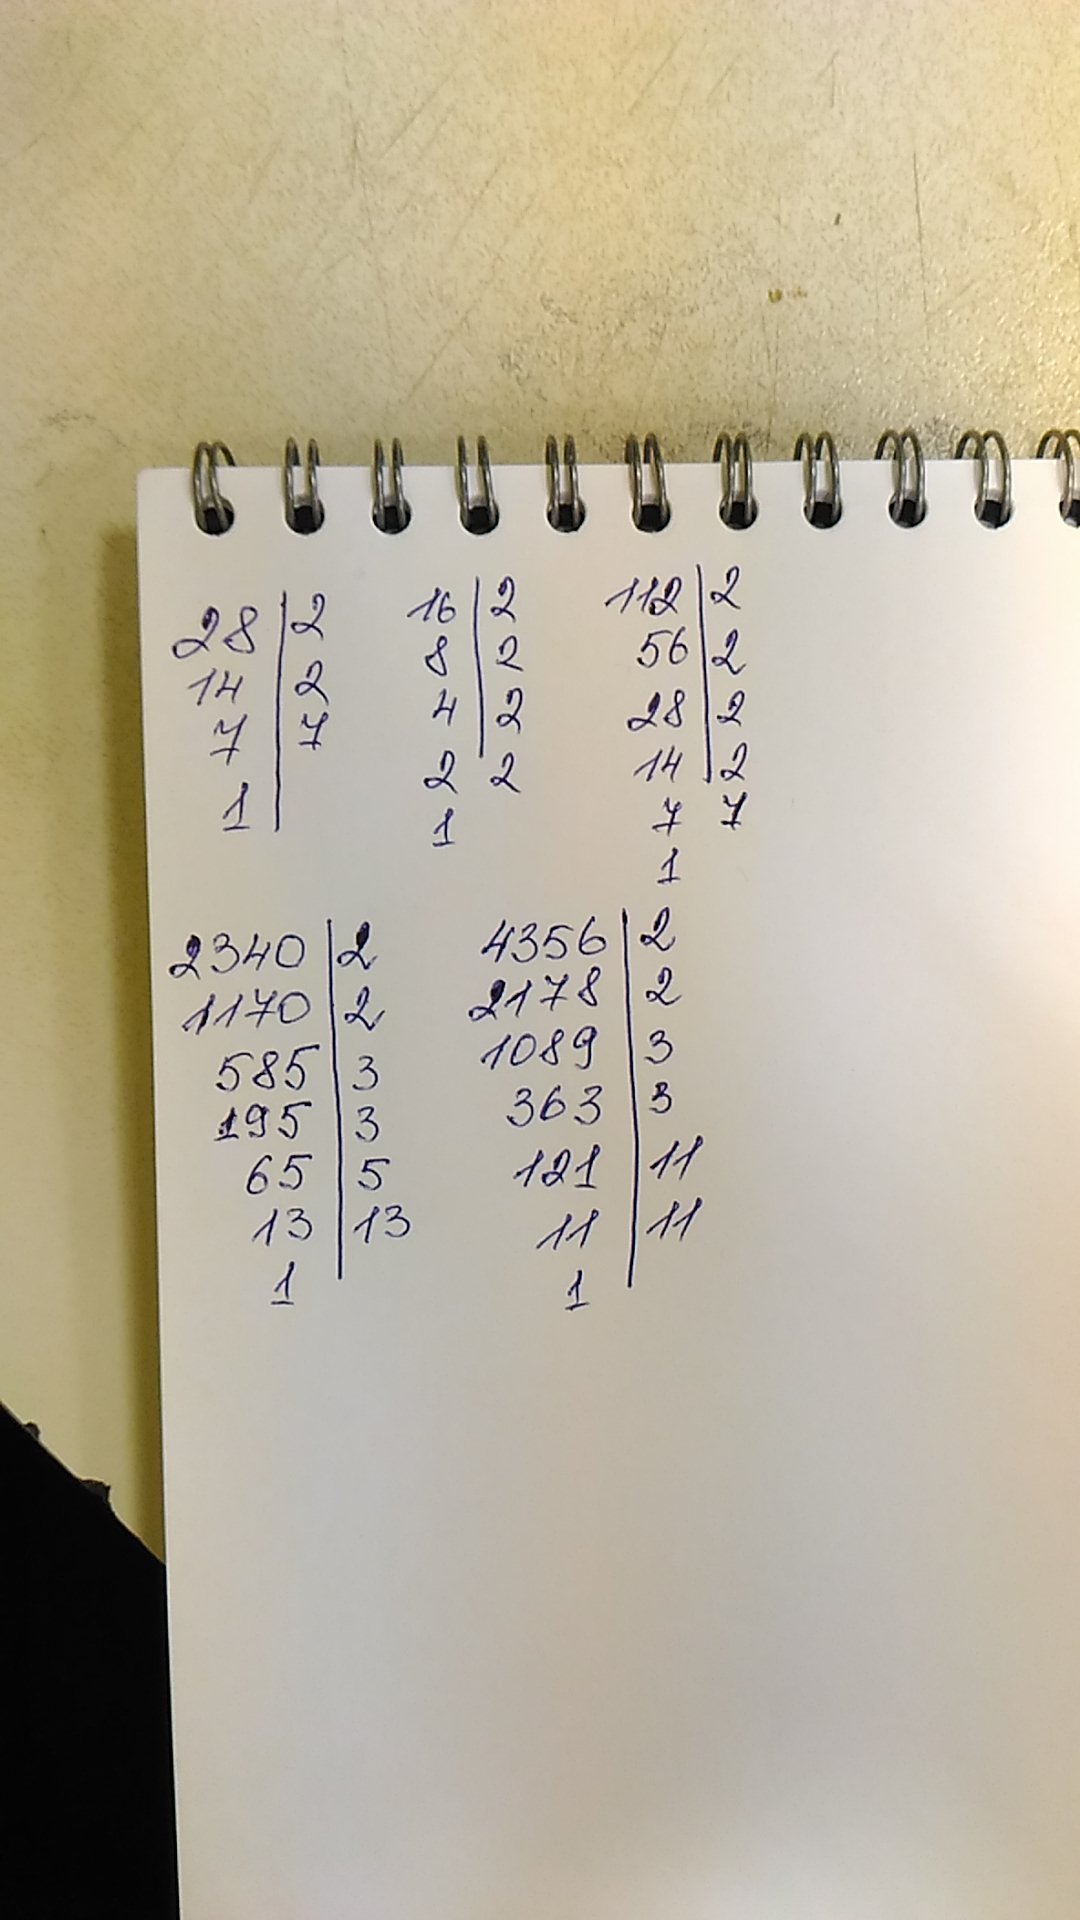 28 | 2
14 | 2
7 | 7
1 |
16 | 2
8 | 2
4 | 2
2 2
1
112 | 2
56 | 2
28 | 2
14 | 2
7 7
1
2340 | 2
1170 | 2
585 | 3
195 | 3
65 | 5
13 | 13
1
4356 | 2
2178 | 2
1089 | 3
363 | 3
121 | 11
11 | 11
1